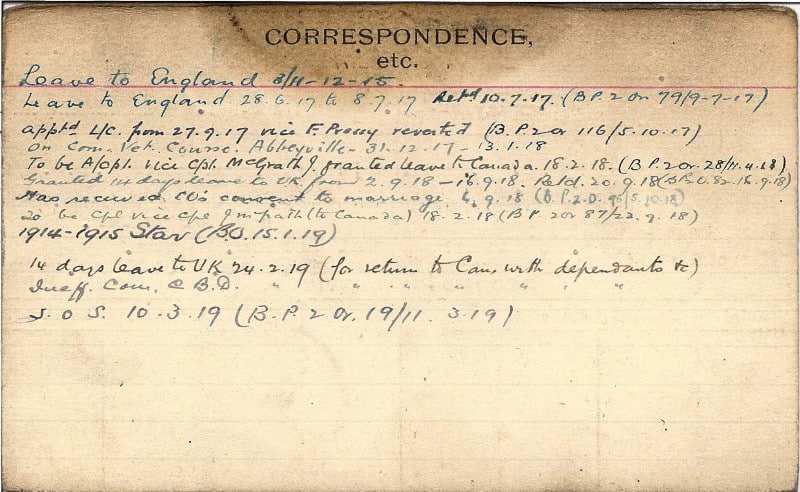 CORRESPONDENCE,
etc.
Leave to England 3/11-12-15
Leave to England 28.6.17 to 8.7.17 Retd 10.7.17. (B P. 2 Or 79/9-7-17)
apptd L/C. from 27.9.17 vice F. reverted (B.P. 2 Or 116/5.10.17)
on Com. Vet. Course. Abbeyville - 31.12.17 - 13.1.18
To be A/Cpl. vice Cpl. McGrath J. granted leave to Canada. 18.2.18. (B P. 2 Or. 28/11.4.18)
Granted 14 days leave to UK from 2.9.18 - 16.9.18. Retd. 20.9.18
Has received CO's consent to marriage. 4.9.18 (B.P. 2.O. 95/5.10.18)
To be Cpl vice Cpl (to Canada) 18.2.18 (B P 2 Or 87/22.9.18)
1914-1915 Star (BO.15.1.19)
14 days leave to UK 24.2.19 (for return to Can, with dependants &c)
Ineff. Com. C B.D. " " " " " " "
S. O S. 10.3.19 (B.P. 2 Or. 19/11.3.19)